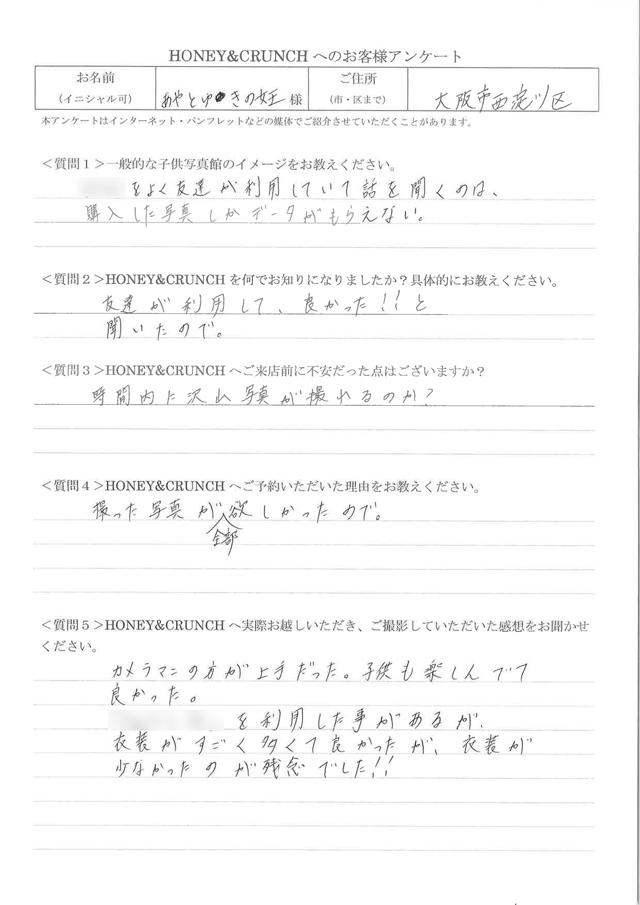 HONEY&CRUNCH へのお客様アンケート
お名前
(イニシャル可)
あやとゆ きの女王 様
ご住所
(市・区まで)
大阪市西淀川区
本アンケートはインターネット・パンフレットなどの媒体でご紹介させていただくことがあります。
＜質問１＞一般的な子供写真館のイメージをお教えください。
をよく友達が利用していて話を聞くのは、
購入した写真しかデータがもらえない。
＜質問２＞HONEY&CRUNCH を何でお知りになりましたか？具体的にお教えください。
友達が利用して、良かった!!と
聞いたので。
＜質問３＞HONEY&CRUNCH へご来店前に不安だった点はございますか？
時間内に沢山写真が撮れるのか?
＜質問４＞HONEY&CRUNCH へご予約いただいた理由をお教えください。
撮った写真が欲しかったので。
全部
＜質問５＞HONEY&CRUNCH へ実際お越しいただき、ご撮影していただいた感想をお聞かせ
ください。
カメラマンの方が上手だった。子供も楽しんでて
良かった。
を利用した事があるが、
衣装がすごく多くて良かったが、衣装が
少なかったのが残念でした!!